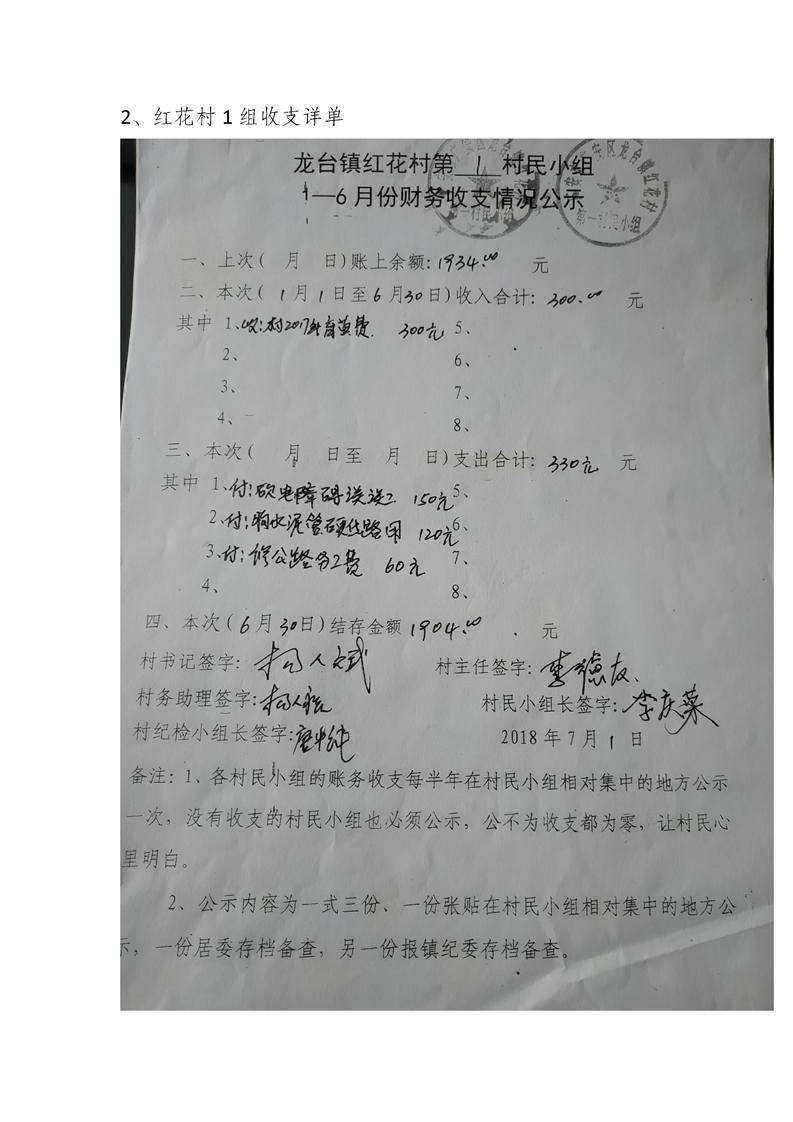 2、红花村1组收支详单
龙台镇红花村第 1 村民小组
1—6月份财务收支情况公示
一、上次( 月 日)账上余额:1934.00 元
二、本次(1月1日至6月30日)收入合计:300.00 元
其中 1、收:村2017年 费 300元 5、
2、 6、
3、 7、
4、 8、
三、本次( 月 日至 月 日)支出合计:330元 元
其中 1、付:砍电障碍 工 150元 5、
2、付:购水泥管 线路用 120元 6、
3、付:修公路务工费 60元 7、
4、 8、
四、本次(6月30日)结存金额1904.00 . 元
村书记签字: 村主任签字:
村务助理签字: 村民小组长签字:李庆菜
村纪检小组长签字: 2018年7月1日
备注:1、各村民小组的账务收支每半年在村民小组相对集中的地方公示
一次,没有收支的村民小组也必须公示,公不为收支都为零,让村民心
里明白。
2、公示内容为一式三份、一份张贴在村民小组相对集中的地方公
示,一份居委存档备查,另一份报镇纪委存档备查。
区龙台镇红花村
第一村民小组
第一村民小组